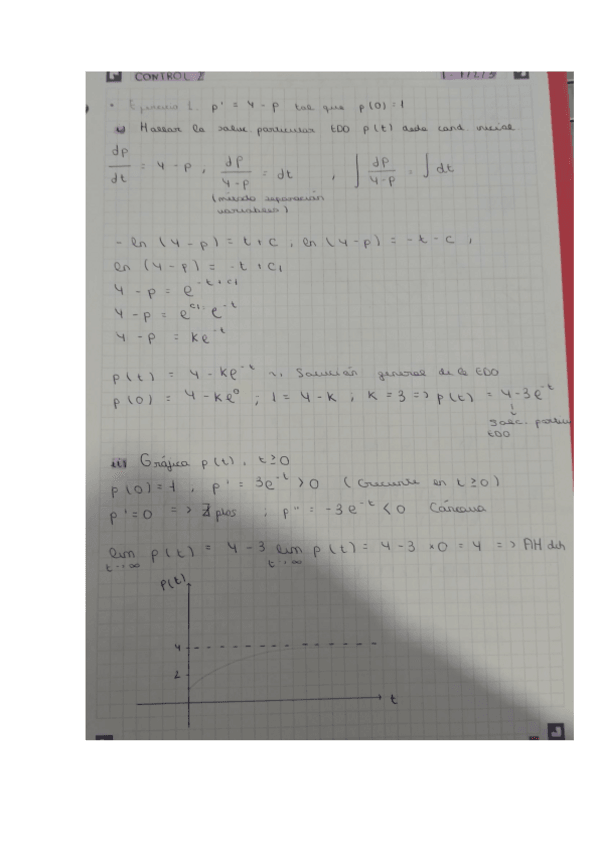 CONTROL 2
Ejercicio 1. p' = 4 - p tal que p(0) = 1
i) Hallar la soluc particular EDO p(t) dada cond. inicial
dp/dt = 4 - p , dp/(4-p) = dt , ∫ dp/(4-p) = ∫ dt
(método separación
variables)
- ln (4 - p) = t + c ; ln (4 - p) = - t - c ;
ln (4 - p) = - t + c₁
4 - p = e^(-t + c₁)
4 - p = e^(c₁) · e^(-t)
4 - p = ke^(-t)
p(t) = 4 - ke^(-t) Solución general de la EDO
p(0) = 4 - ke⁰ ; 1 = 4 - k ; k = 3 => p(t) = 4 - 3e^(-t)
↓
soluc. particu
EDO
ii) Gráfica p(t), t ≥ 0
p(0) = 1 , p' = 3e^(-t) > 0 (Creciente en t ≥ 0)
p' = 0 => ∄ ptos ; p'' = -3e^(-t) < 0 Cóncava
lim t→∞ p(t) = 4 - 3 lim t→∞ p(t) = 4 - 3 × 0 = 4 => AH dch
p(t)
4
2
t